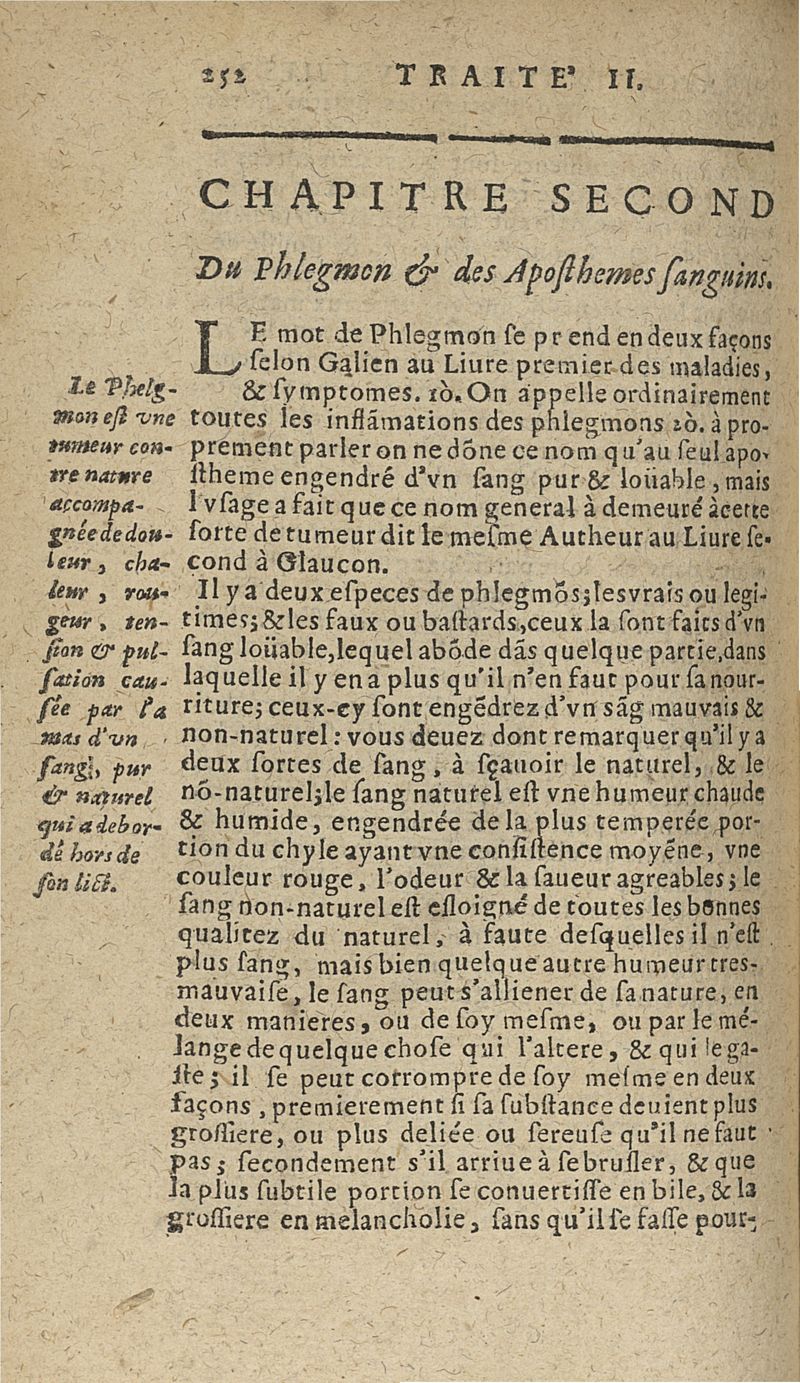 252 TRAITE' II.
CHAPITRE SECOND
Du Phlegmon & des Apoſthemes ſanguins.
LE mot de Phlegmon ſe prend en deux façons
ſelon Galien au Liure premier des maladies,
& ſymptomes. 1ò. On appelle ordinairement
toutes les inflãmations des phlegmons 2ò. à pro-
prement parler on ne dõne ce nom qu'au ſeul apo-
ſtheme engendré d'vn ſang pur & loüable, mais
l vſage a fait que ce nom general à demeuré àcette
ſorte de tumeur dit le meſme Autheur au Liure ſe-
cond à Glaucon.
Il y a deux eſpeces de phlegmõs; les vrais ou legi-
times; & les faux ou baſtards, ceux la ſont faits d'vn
ſang loüable, lequel abõde dãs quelque partie, dans
laquelle il y en a plus qu'il n'en faut pour ſa nour-
riture; ceux-cy ſont engẽdrez d'vn sãg mauvais &
non-naturel : vous deuez dont remarquer qu'il y a
deux ſortes de ſang, à ſçauoir le naturel, & le
nõ-naturel; le ſang naturel eſt vne humeur chaude
& humide, engendrée de la plus temperée por-
tion du chyle ayant vne conſiſtence moyẽne, vne
couleur rouge, l'odeur & la ſaueur agreables; le
ſang non-naturel eſt eſloigné de toutes les bonnes
qualitez du naturel, à faute deſquelles il n'eſt
plus ſang, mais bien quelque autre humeur tres-
mauvaiſe, le ſang peut s'alliener de ſa nature, en
deux manieres, ou de ſoy meſme, ou par le mé-
lange de quelque choſe qui l'altere, & qui le ga-
ſte; il ſe peut corrompre de ſoy meſme en deux
façons, premierement ſi ſa ſubſtance deuient plus
groſſiere, ou plus deliée ou ſereuſe qu'il ne faut
pas; ſecondement s'il arriue à ſe bruſler, & que
la plus ſubtile portion ſe conuertiſſe en bile, & la
groſſiere en melancholie, ſans qu'il ſe faſſe pour-
Le Phelg-
mon eſt vne
tumeur con-
tre nature
accompa-
gnée de dou-
leur, cha-
leur, rou-
geur, ten-
ſion & pul-
ſation cau-
ſée par l'a
mas d'vn
ſang, pur
& naturel
qui a debor-
dé hors de
ſon lict.